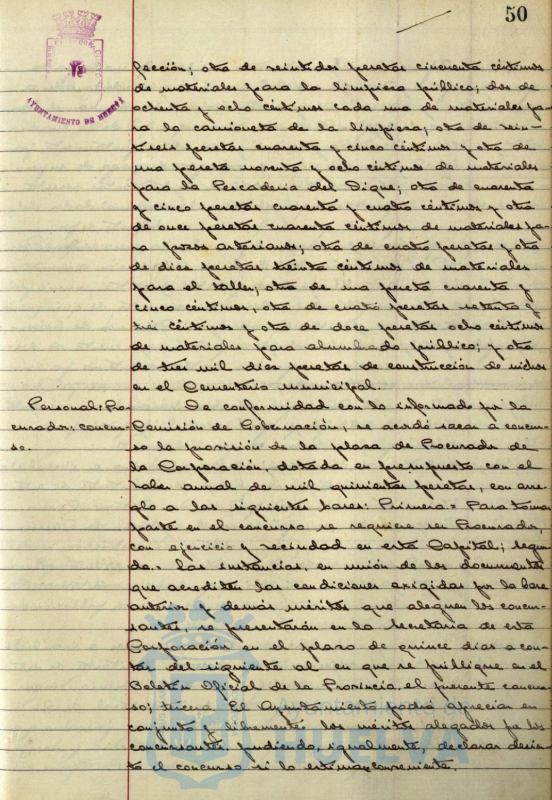 50
AYUNTAMIENTO DE HUELVA
fección; otra de veintidos pesetas cincuenta céntimos
de materiales para la limpieza pública; dos de
ochenta y ocho céntimos cada una de materiales pa-
ra la camioneta de la limpieza; otra de vein-
tiseis pesetas cuarenta y cinco céntimos y otra de
una peseta noventa y ocho céntimos de materiales
para la Pescaderia del Dique; otra de cuarenta
y cinco pesetas cuarenta y cuatro céntimos y otra
de once pesetas cuarenta céntimos de materiales pa-
ra pozos artesianos; otra de cuatro pesetas y otra
de diez pesetas treinta céntimos de materiales
para el taller; otra de una peseta cuarenta y
cinco céntimos, otra de cuatro pesetas setenta y
tres céntimos y otra de doce pesetas ocho céntimos
de materiales para alumbrado público; y otra
de tres mil diez pesetas de construcción de nichos
en el Cementerio municipal.
Personal: Pro-
curador: concur-
so.
De conformidad con lo informado por la
Comisión de Gobernación, se acordó sacar a concur-
so la provisión de la plaza de Procurador de
la Corporación, dotada en presupuesto con el
haber anual de mil quinientas pesetas, con arre-
glo a las siguientes bases: Primera.= Para tomar
parte en el concurso se requiere ser Procurador,
con ejercicio y vecindad en esta Capital; segun-
da.= Las instancias, en unión de los documentos
que acrediten las condiciones exigidas por la base
anterior y demás méritos que aleguen los concur-
santes, se presentarán en la Secretaria de esta
Corporación en el plazo de quince dias a con-
tar del siguiente al en que se publique en el
Boletin Oficial de la Provincia, el presente concur-
so; tercera. El Ayuntamiento podrá apreciar en
conjunto y libremente los méritos alegados por los
concursantes, pudiendo, igualmente, declarar desier-
to el concurso si lo estima conveniente.
HUELVA